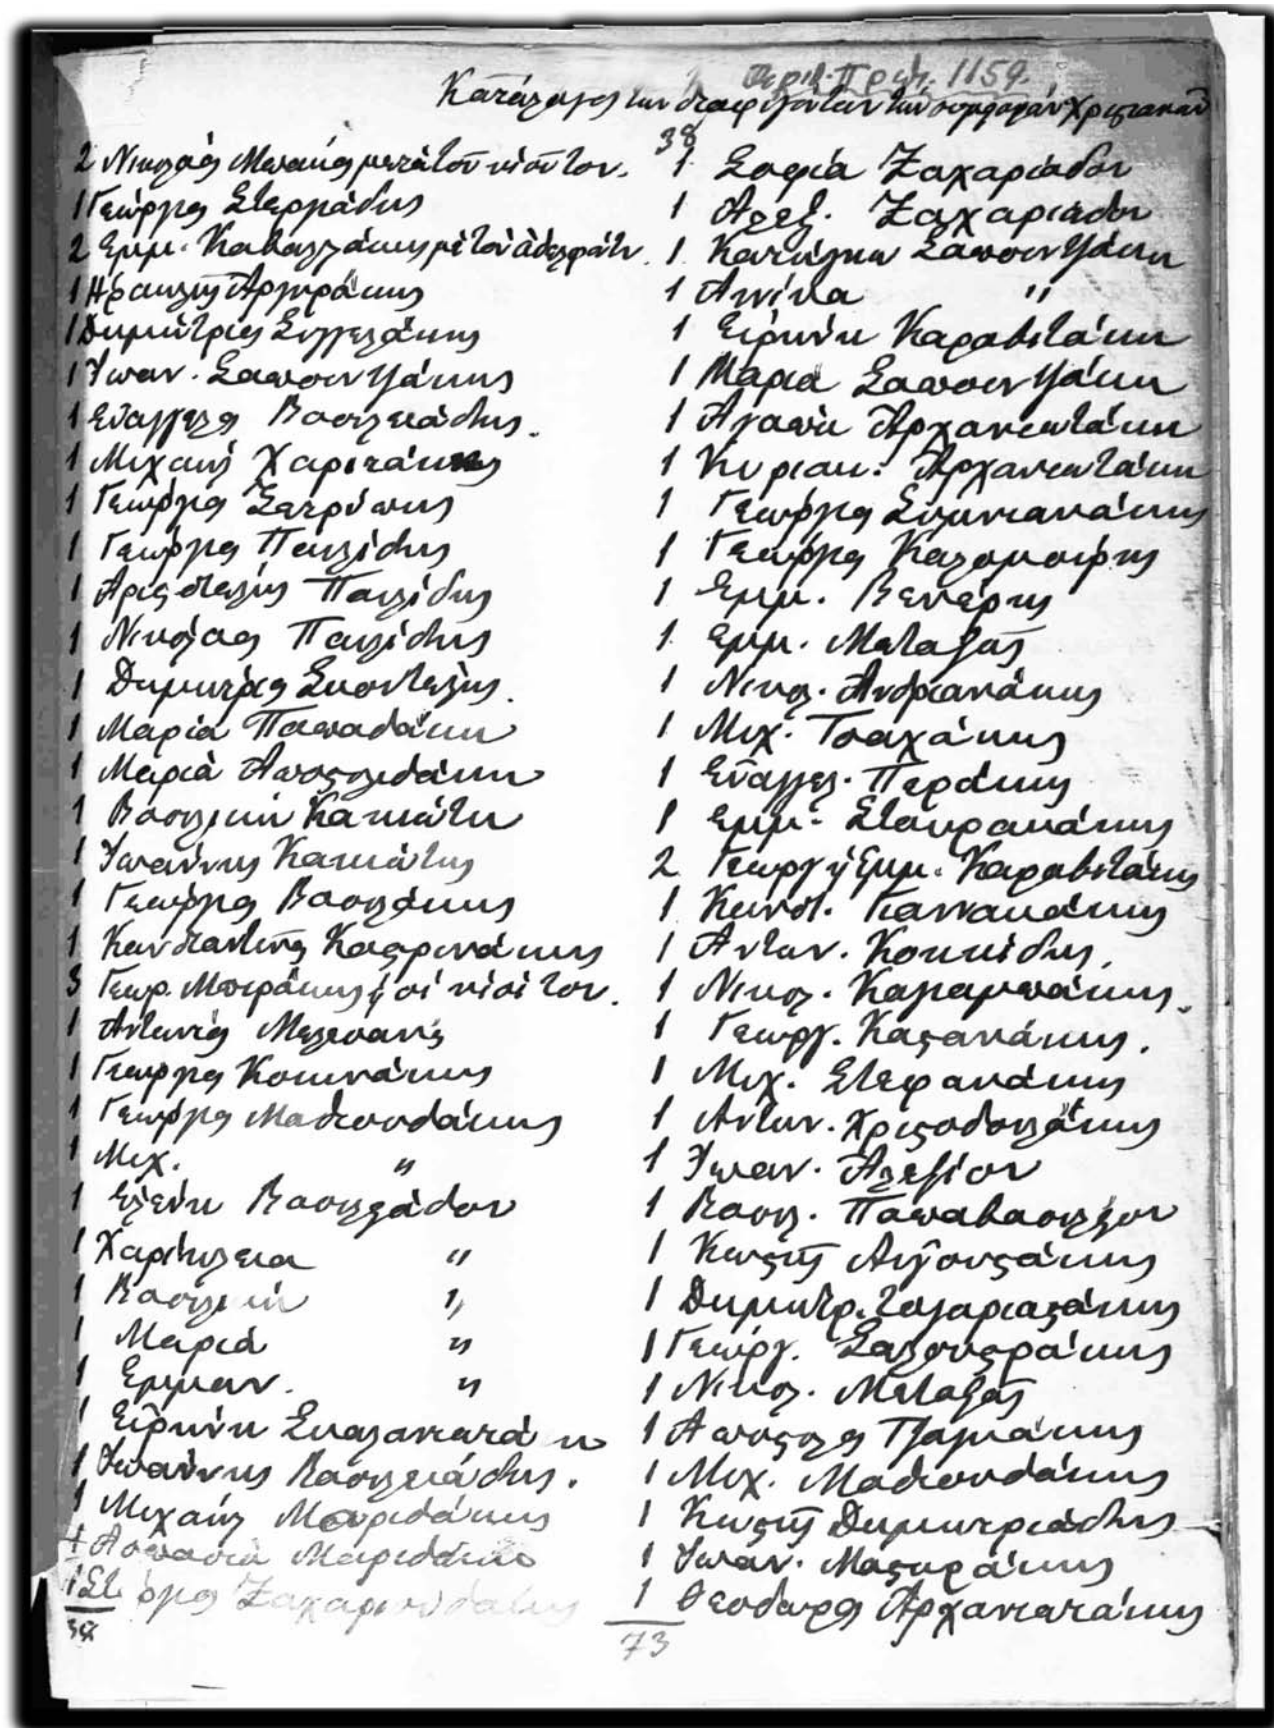 Αριθ. Πρωτ. 1159.
Κατάλογος των διαφυγόντων την συμφοράν Χριστιανών
2 Νικολάος μετά του υιού του.
1 Γεώργιος Στεργιάδης
2 Εμμ. Καβαλλάκης με τον άδελφόν
1 Ηρακλής Αργυράκης
1 Δημήτριος Συγγελάκης
1 Ιωάν. Σαπουντζάκης
1 Ευάγγελος Βασιλειάδης.
1 Μιχαήλ Χαριτάκης
1 Γεώργιος Σατρίπης
1 Γεώργιος Παυλίδης
1 Αριστοτέλης Παυλίδης
1 Νικόλαος Παυλίδης
1 Δημήτριος Σκουντέλης.
1 Μαρία Παπαδάκη
1 Μαρία Αποστολιδάκη
1 Βασιλική Κακιάτη
1 Ιωάννης Κακιάτης
1 Γεώργιος Βασιλάκης
1 Κωνσταντίνος Καστρινάκης
3 Γεωρ. Μπεράκης οι υιοί του.
1 Αντώνιος
1 Γεώργιος Κοκινάκης
1 Γεώργιος Μαθιουδάκης
1 Μιχ. "
1 Ελένη Βασιλειάδου
1 Χαρίκλεια "
1 Βασιλική "
1 Μαρία "
1 Εμμαν. "
1 Ειρήνη
1 Ιωάννης Βασιλειάδης.
1 Μιχαήλ Μαριδάκης
1 Ασπασία Μαριδάκη
1 Ζαχαριουδάκης
38
38
1 Σοφία Ζαχαριάδου
1 Αλεξ. Ζαχαριάδου
1 Κατίγκω Σαπουντζάκη
1 Αννίκα "
1 Ειρήνη Καραβιτάκη
1 Μαρία Σαπουντζάκη
1 Αγάπη Αρχανιωτάκη
1 Κυριακ. Αρχανιωτάκη
1 Γεώργιος Συλιγνιανάκης
1 Γεώργιος Καλομοίρης
1 Εμμ. Βενέρης
1 Εμμ. Μεταξάς
1 Νικολ. Ανδριανάκης
1 Μιχ. Τσαχάκης
1 Ευάγγελ. Περάκης
1 Εμμ. Σταυρακάκης
2 Γεωργ. ή Εμμ. Καραβιτάκης
1 Κωνστ. Γιαννακάκης
1 Αντων. Κοκκίδης.
1 Νικολ. Καραμπάκης.
1 Γεωργ. Καστανάκης.
1 Μιχ. Στεφανάκης
1 Αντων. Χριστοδουλάκης
1 Ιωάν. Αλεξίου
1 Βασιλ. Παπαβασιλείου
1 Κωστής Αυγουστάκης
1 Δημητρ.
1 Γεώργ. Σαλουστράκης
1 Νικολ. Μεταξάς
1 Απόστολος Τζαγκάκης
1 Μιχ. Μαθιουδάκης
1 Κωστής Δημητριάδης
1 Ιωάν. Μαστοράκης
1 Θεόδωρος Αρχανιωτάκης
73